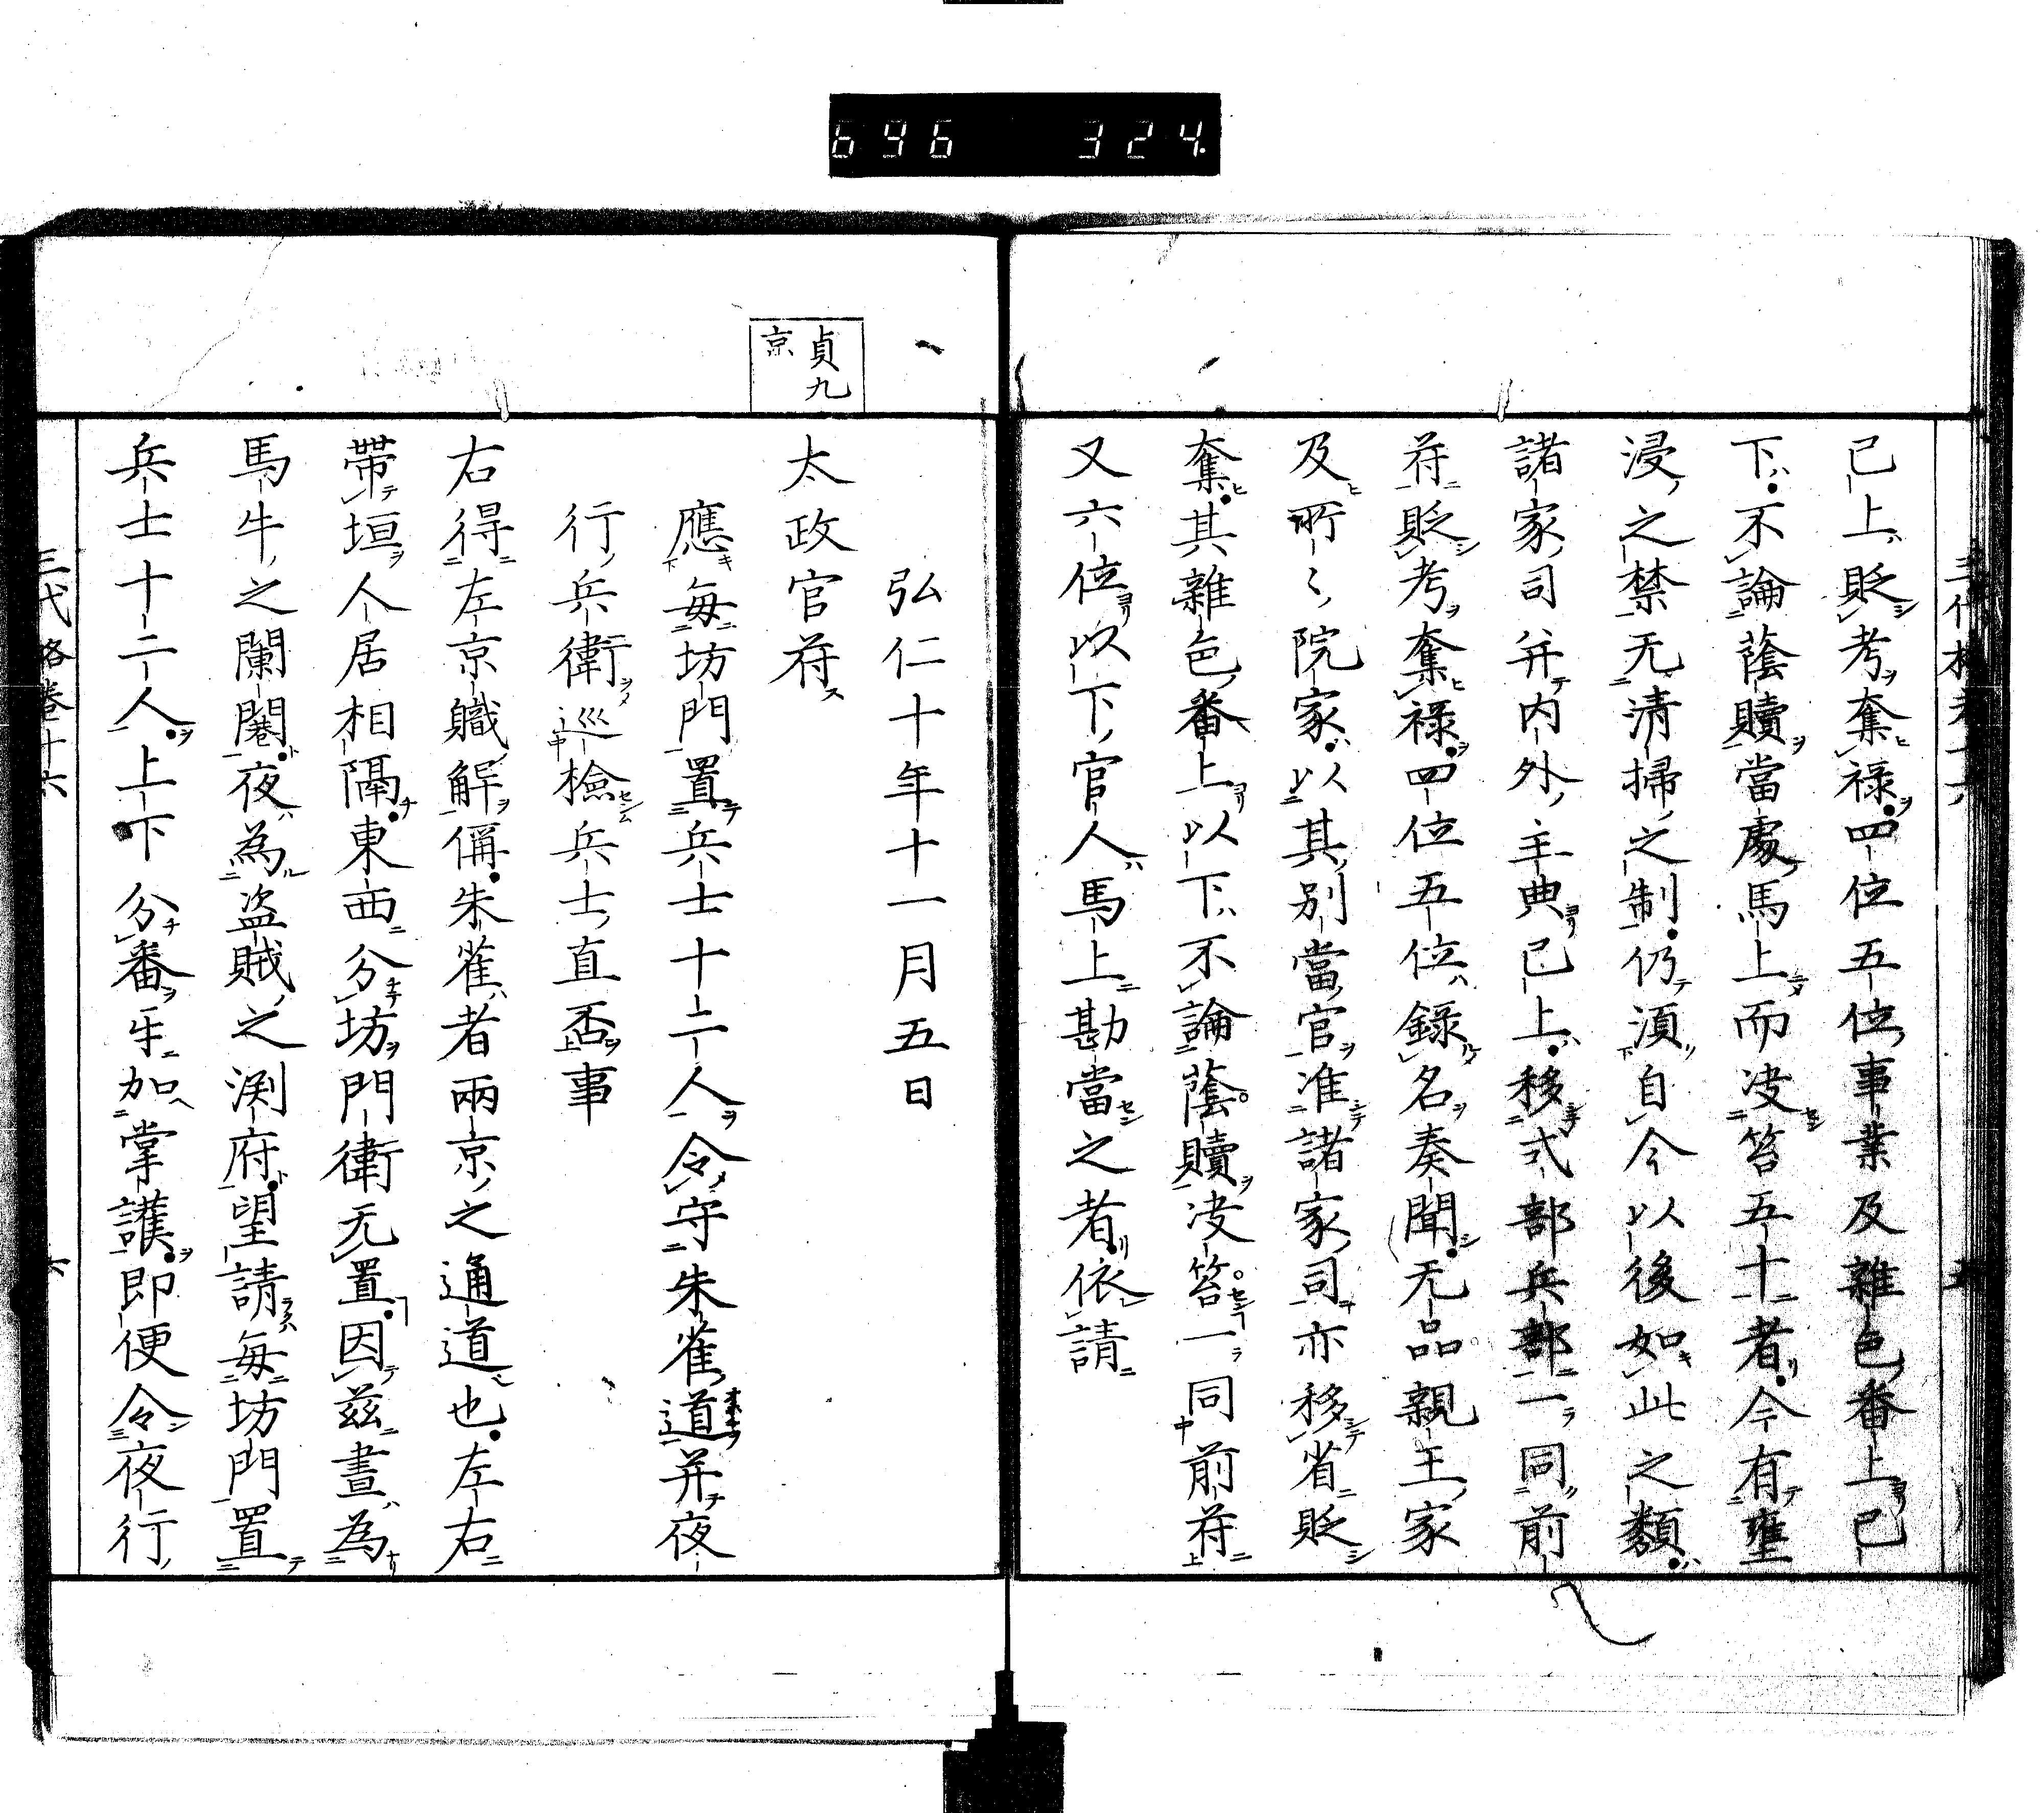 696 324
已上貶考奪禄四位五位事業及雜色番上已
下不論蔭贖當處馬上而决笞五十者今有壅
浸之禁无清掃之制仍湏自今以後如此之類
諸家司并内外主典已上移式部兵部一同前
苻貶考奪禄四位五位錄名奏聞无品親王家
及所〻院家以其別當官准諸家司亦移省貶
奪其雜色番上以下不論蔭贖决笞一同前苻
又六位以下官人馬上勘當之者依請
弘仁十年十一月五日
貞九
京
太政官苻
應毎坊門置兵士十二人令守朱雀道并夜
行兵衛巡檢兵士直否事
右得左京職解偁朱雀者兩京之通道也左右
帶垣人居相隔東西分坊門衛无置因茲晝為
馬牛之闌闠夜為盗賊之渕府望請毎坊門置
兵士十二人上下分番以加掌護即便令夜行
三代格卷十六
六